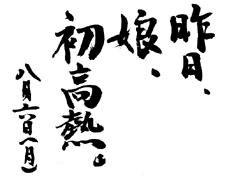 昨日、
娘、
初高熱。
八月六日(月)